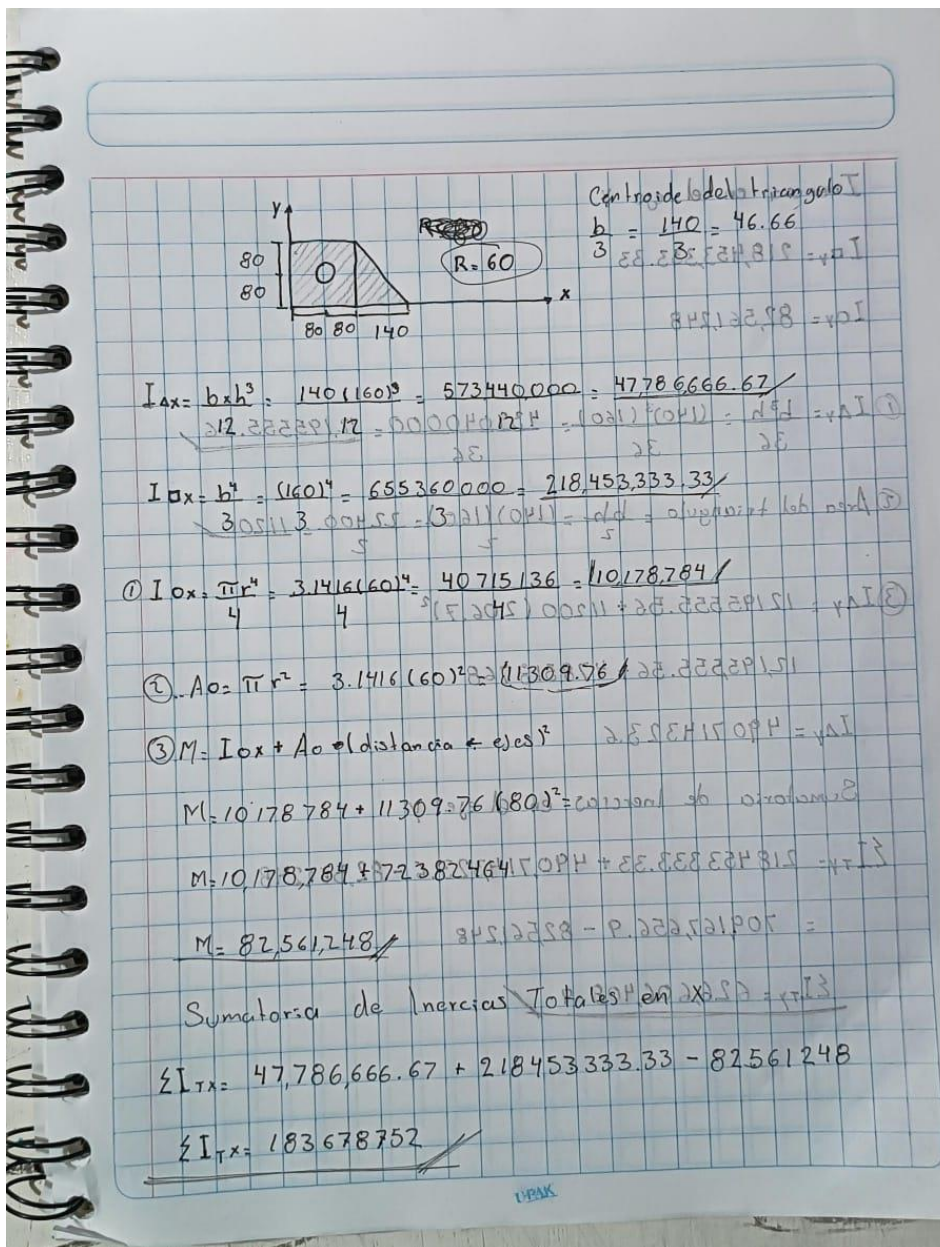 Centroide del triangulo
b/3 = 140/3 = 46.66
Y
80
80
R=60
x
80 80 140
I△x = bxh³ = 140(160)³ = 573440,000 = 47,786,666.67
12 12
I□x = b⁴/3 = (160)⁴/3 = 655360000/3 = 218,453,333.33
① I○x = πr⁴/4 = 3.1416(60)⁴/4 = 40715136 = 10,178,784
② A○ = πr² = 3.1416(60)² = 11309.76
③ M = I○x + A○ (distancia ejes)²
M = 10178784 + 11309.76 (80)²
M = 10,178,784 + 72382464
M = 82,561,248
Sumatoria de Inercias Totales en x
ΣITX = 47,786,666.67 + 218453333.33 - 82561248
ΣITX = 183678752